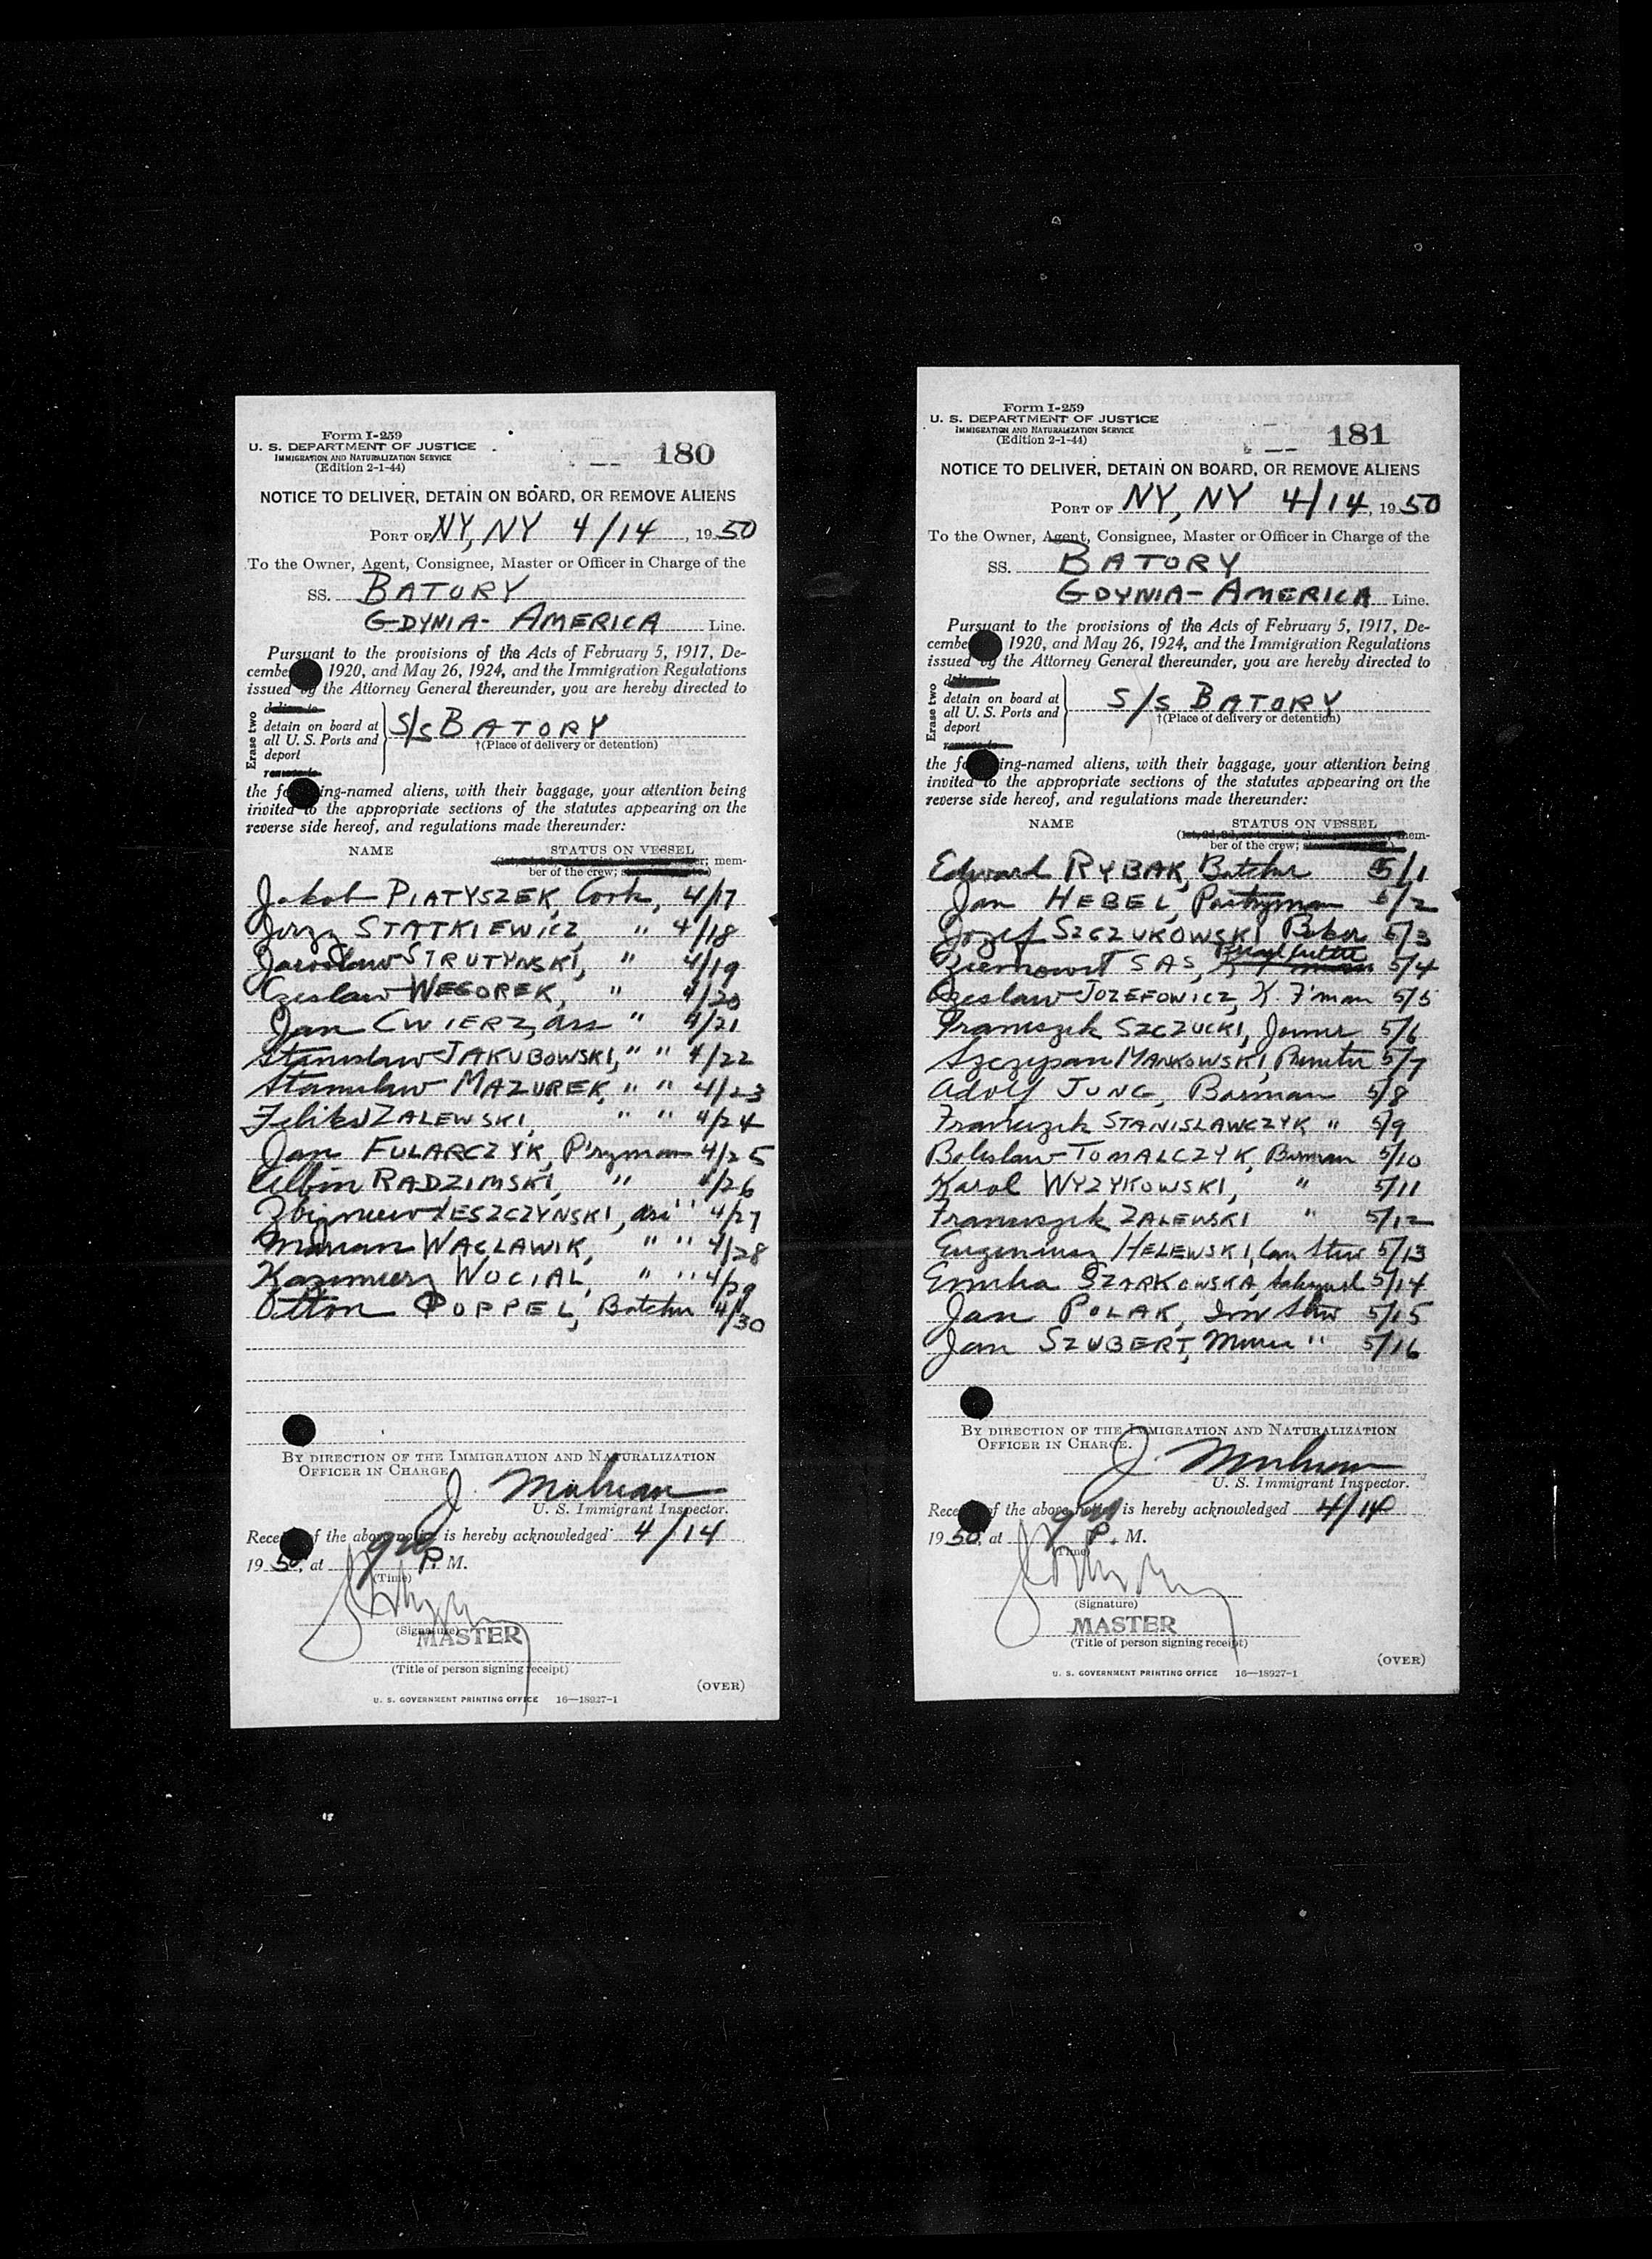 Form I-259
U. S. DEPARTMENT OF JUSTICE
IMMIGRATION AND NATURALIZATION SERVICE
(Edition 2-1-44)
180
NOTICE TO DELIVER, DETAIN ON BOARD, OR REMOVE ALIENS
PORT OF NY, NY 4/14, 1950
To the Owner, Agent, Consignee, Master or Officer in Charge of the
SS. BATORY
GDYNIA-AMERICA Line.
Pursuant to the provisions of the Acts of February 5, 1917, De-
cembe 1920, and May 26, 1924, and the Immigration Regulations
issued by the Attorney General thereunder, you are hereby directed to
Erase two
deliver to
detain on board at
all U. S. Ports and
deport
remove to
S/S BATORY
†(Place of delivery or detention)
the fo ing-named aliens, with their baggage, your attention being
invited to the appropriate sections of the statutes appearing on the
reverse side hereof, and regulations made thereunder:
NAME STATUS ON VESSEL
er; mem-
ber of the crew;
Jakob PIATYSZEK, Cook, 4/17
Jerzy STATKIEWICZ, " 4/18
Jaroslaw STRUTYNSKI, " 4/19
Czeslaw WEGOREK, " 4/20
Jan CWIERZ, ass " 4/21
Stanislaw JAKUBOWSKI, " " 4/22
Stanislaw MAZUREK, " " 4/23
Feliks ZALEWSKI, " " 4/24
Jan FULARCZYK, P'ryman 4/25
Albin RADZIMSKI, " 4/26
Zbigniew LESZCZYNSKI, ass " 4/27
Marian WACLAWIK, " " 4/28
Kazimierz WOCIAL, " " 4/29
Otton POPPEL, Butcher 4/30
BY DIRECTION OF THE IMMIGRATION AND NATURALIZATION
OFFICER IN CHARGE.
J.
U. S. Immigrant Inspector.
Rece f the above notice is hereby acknowledged 4/14
1950, at P. M.
(Time)
(Signature)
MASTER
(Title of person signing receipt)
(OVER)
U. S. GOVERNMENT PRINTING OFFICE 16—18927-1
Form I-259
U. S. DEPARTMENT OF JUSTICE
IMMIGRATION AND NATURALIZATION SERVICE
(Edition 2-1-44)
181
NOTICE TO DELIVER, DETAIN ON BOARD, OR REMOVE ALIENS
PORT OF NY, NY 4/14, 1950
To the Owner, Agent, Consignee, Master or Officer in Charge of the
SS. BATORY
GDYNIA-AMERICA Line.
Pursuant to the provisions of the Acts of February 5, 1917, De-
cembe 1920, and May 26, 1924, and the Immigration Regulations
issued by the Attorney General thereunder, you are hereby directed to
Erase two
deliver to
detain on board at
all U. S. Ports and
deport
remove to
S/S BATORY
†(Place of delivery or detention)
the fo ing-named aliens, with their baggage, your attention being
invited to the appropriate sections of the statutes appearing on the
reverse side hereof, and regulations made thereunder:
NAME STATUS ON VESSEL
mem-
ber of the crew;
Edward RYBAK, Butcher 5/1
Jan HEBEL, Pantryman 5/2
Jozef SZCZUKOWSKI Baker 5/3
Ziemowit SAS, Bread cutter 5/4
Czeslaw JOZEFOWICZ, K. F'man 5/5
Franciszek SZCZUCKI, Joiner 5/6
Szczepan MANKOWSKI, Printer 5/7
Adolf JUNG, Barman 5/8
Franciszek STANISLAWCZYK " 5/9
Boleslaw TOMALCZYK, Barman 5/10
Karol WYZYKOWSKI, " 5/11
Franciszek ZALEWSKI " 5/12
Eugeniusz HELEWSKI, Stew 5/13
Emilia SZARKOWSKA, 5/14
Jan POLAK, Stew 5/15
Jan SZUBERT, " 5/16
BY DIRECTION OF THE IMMIGRATION AND NATURALIZATION
OFFICER IN CHARGE.
J.
U. S. Immigrant Inspector.
Rece f the above notice is hereby acknowledged 4/14
1950, at P. M.
(Time)
(Signature)
MASTER
(Title of person signing receipt)
(OVER)
U. S. GOVERNMENT PRINTING OFFICE 16—18927-1